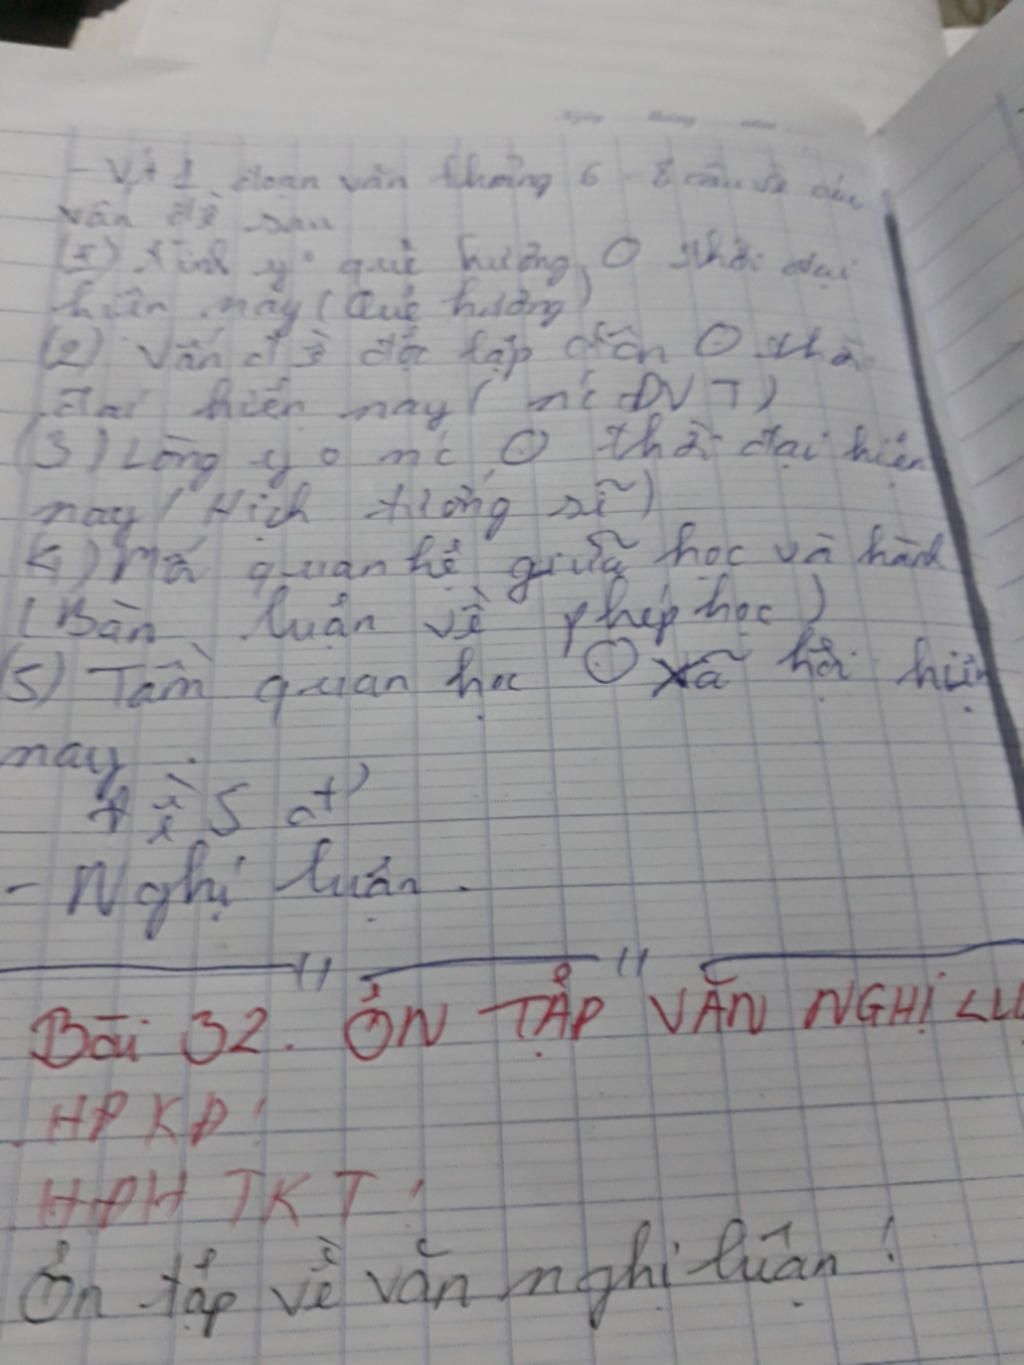 Ngày tháng năm
- Vt 1 đoạn văn khoảng 6 - 8 câu về các
vấn đề sau
(1) tình y quê hương, O thời đại
hiện nay (Quê hương)
(2) Vấn đề độc lập dân O thời
đại hiện nay ( nc ĐVT)
(3) Lòng yo nc O thời đại hiện
nay ( Hịch tướng sĩ)
4) Mố quan hệ giữa học và hành
(Bàn luận về phép học)
(5) Tầm quan học O xã hội hiện
nay.
- Nghị luận.
Bài 32. ÔN TẬP VĂN NGHỊ LU
HĐ KĐ:
HĐH TKT:
Ôn tập về văn nghị luận: